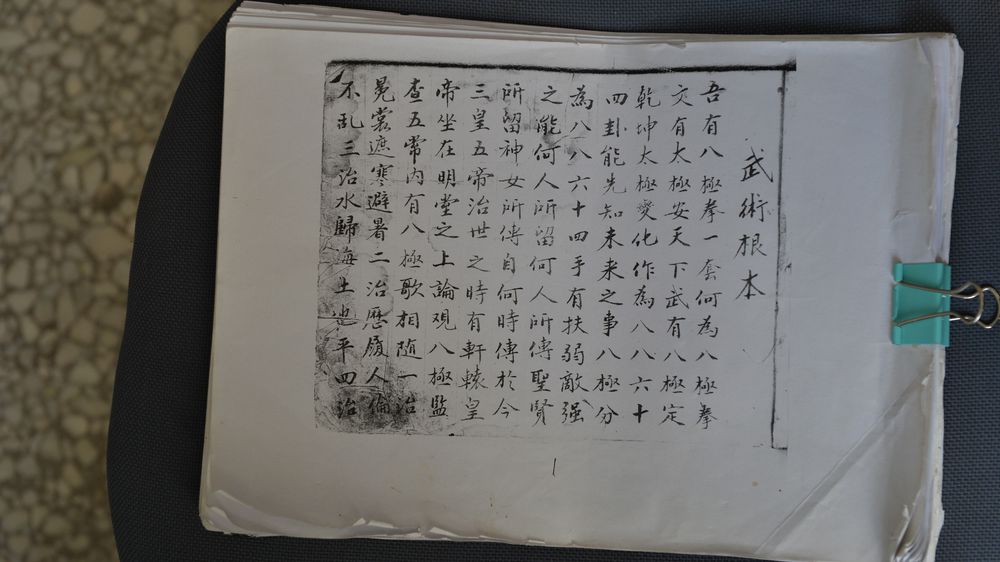 武術根本
吾有八極拳一套何為八極拳
文有太極安天下武有八極定
乾坤太極變化作為八八六十
四卦能先知未来之事八極分
為八八六十四手有扶弱敵强
之能何人所留何人所傳聖賢
所留神女所傳自何時傳於今
三皇五帝治世之時有軒轅皇
帝坐在明堂之上論观八極監
查五常内有八極歌相随一治
冕裳遮寒避暑二治歷履人倫
不乱三治水歸海土地平四治
1